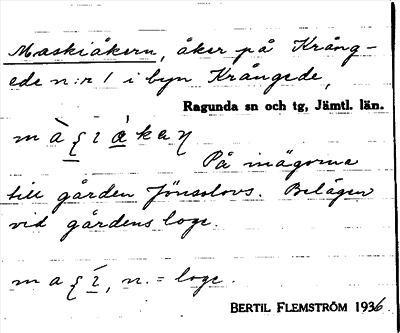 Maskiåkern, åker på Krång-
ede n:r 1 i byn Krångede,
Ragunda sn och tg, Jämtl. län.
På inägorna
till gården Jönsolovs. Belägen
vid gårdens loge.
n. = loge.
BERTIL FLEMSTRÖM 1936